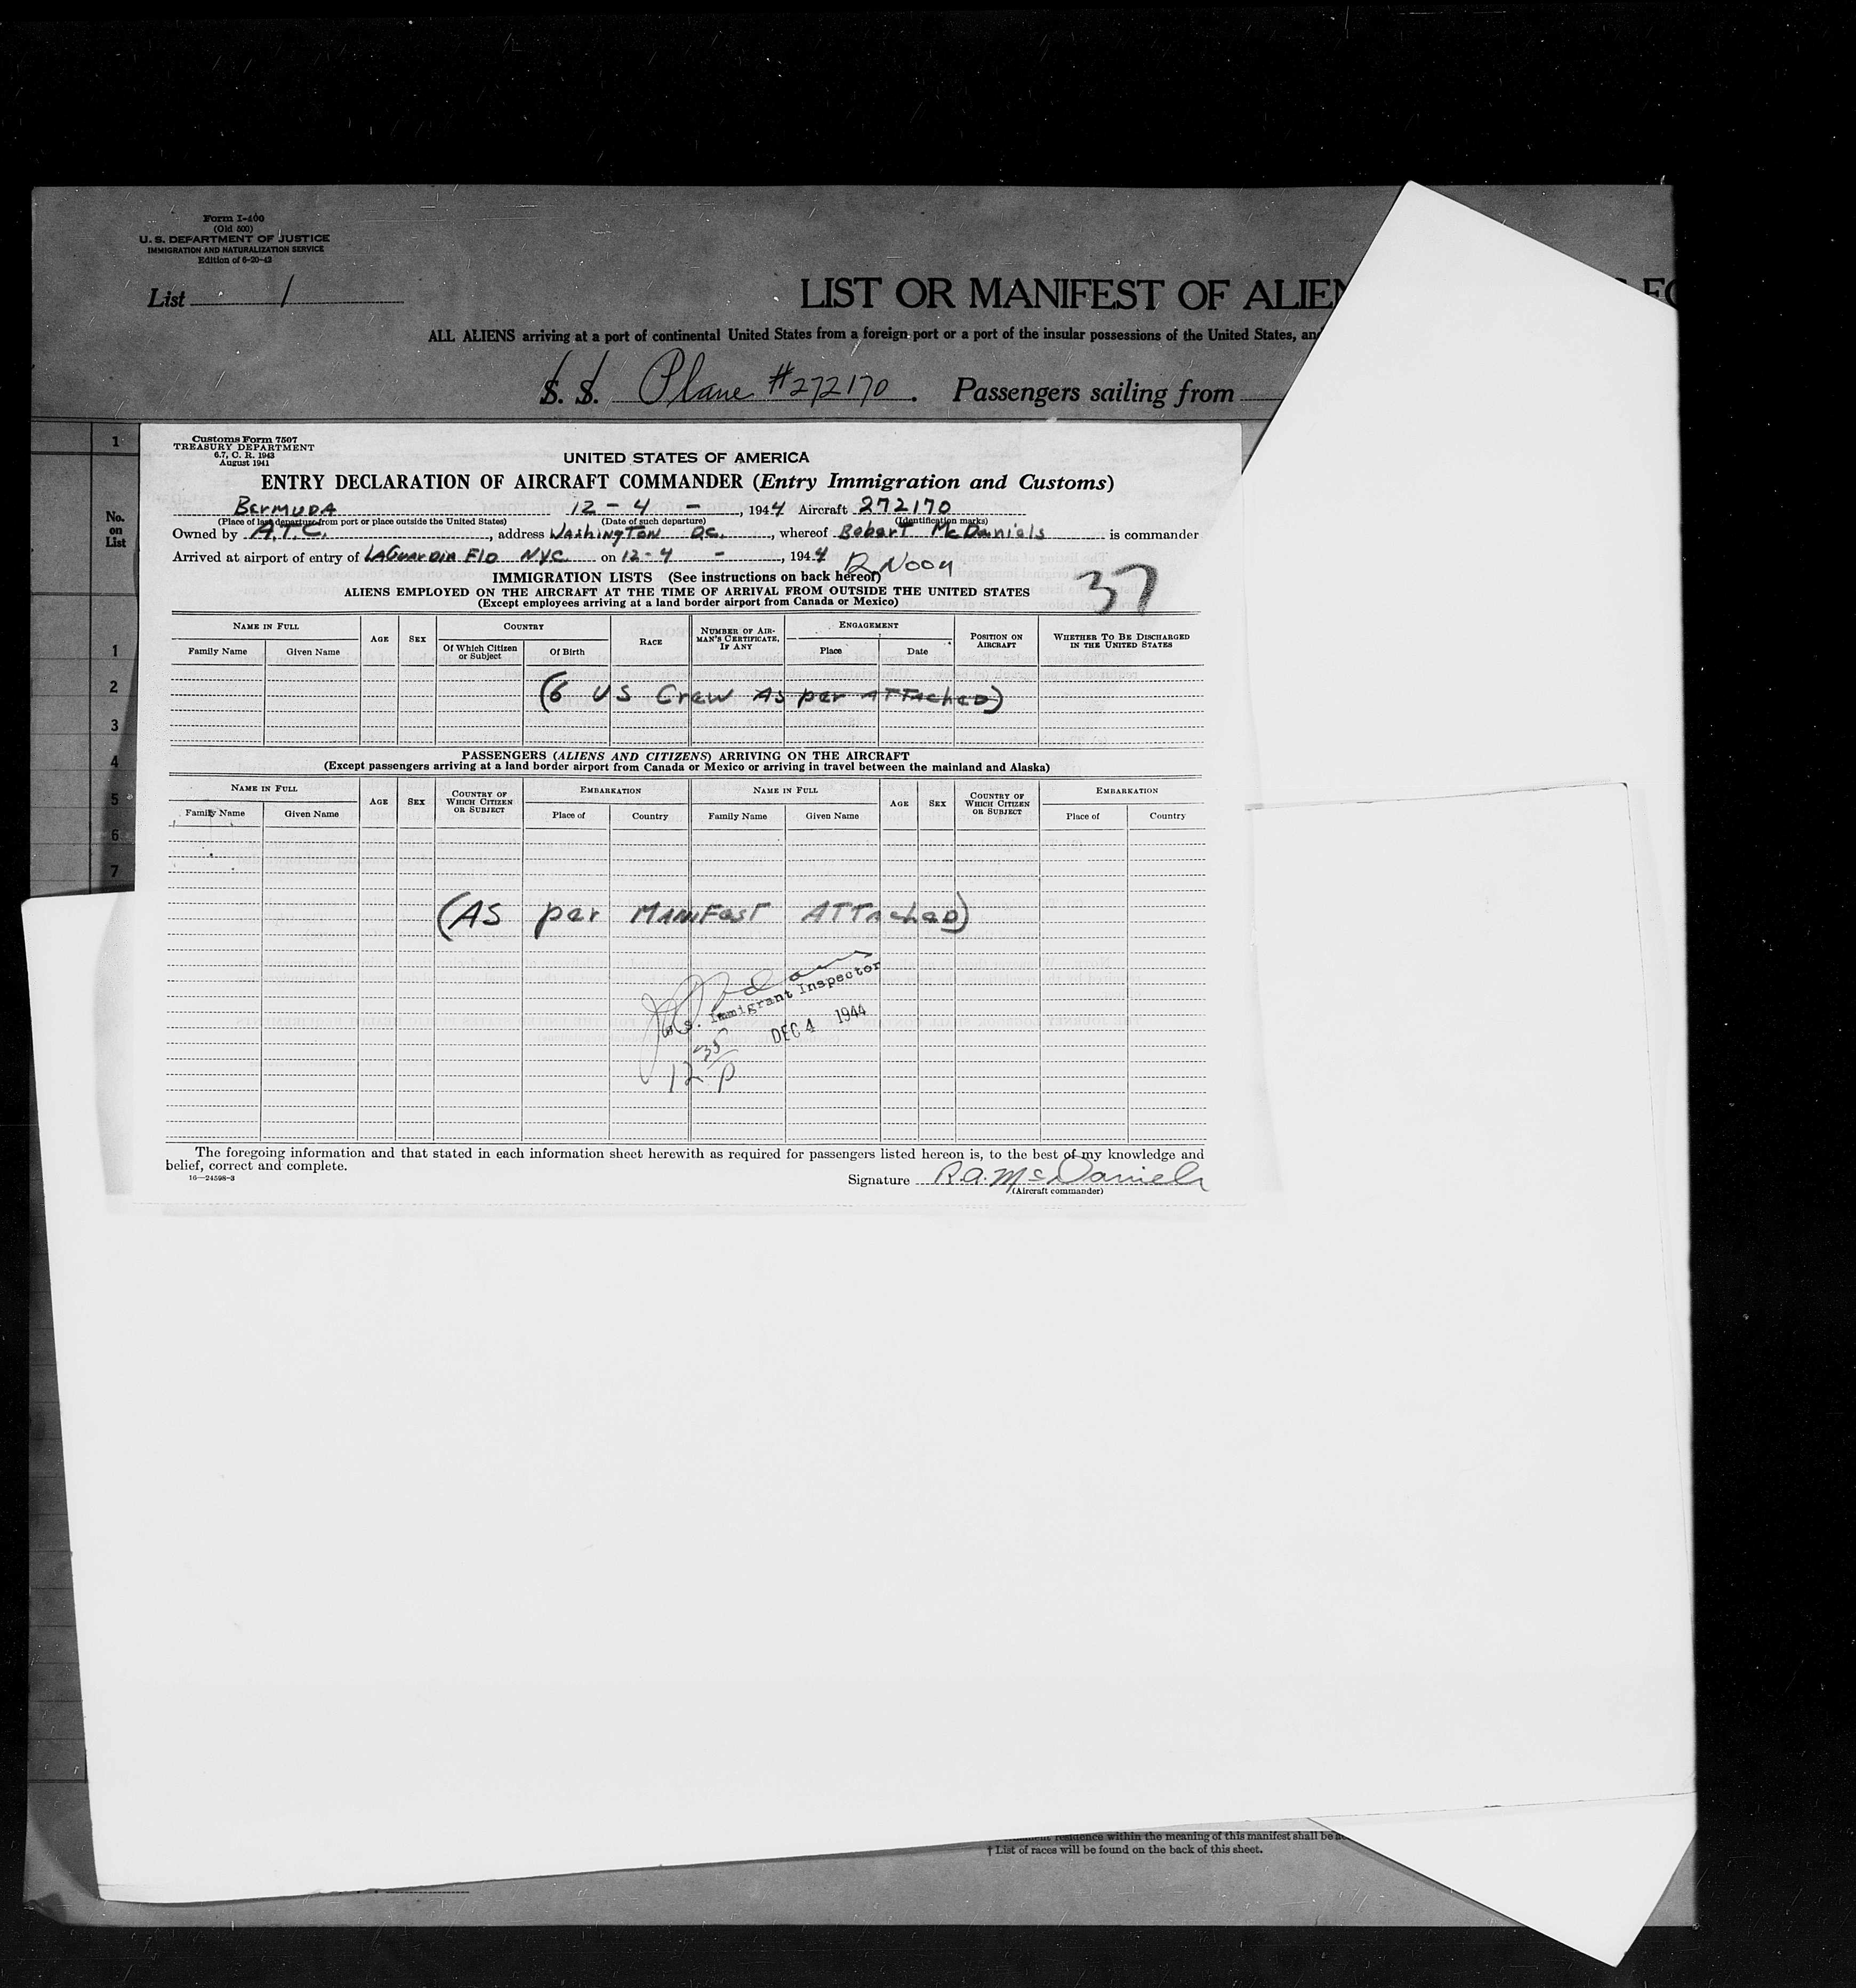 Form I-400
(Old 500)
U. S. DEPARTMENT OF JUSTICE
IMMIGRATION AND NATURALIZATION SERVICE
Edition of 6-20-42
List 1
LIST OR MANIFEST OF ALIEN
ALL ALIENS arriving at a port of continental United States from a foreign port or a port of the insular possessions of the United States, an
S. S. Plane #272170. Passengers sailing from
Customs Form 7507
TREASURY DEPARTMENT
6.7, C. R. 1943
August 1941
UNITED STATES OF AMERICA
ENTRY DECLARATION OF AIRCRAFT COMMANDER (Entry Immigration and Customs)
BERMUDA 12 - 4 -, 1944 Aircraft 272170
(Place of last departure from port or place outside the United States) (Date of such departure) (Identification marks)
Owned by A.T.C., address Washington D.C., whereof Bobart McDaniels is commander
Arrived at airport of entry of LaGuardia Fld NYC on 12-4 -, 1944
12 Noon
IMMIGRATION LISTS (See instructions on back hereof)
37
ALIENS EMPLOYED ON THE AIRCRAFT AT THE TIME OF ARRIVAL FROM OUTSIDE THE UNITED STATES
(Except employees arriving at a land border airport from Canada or Mexico)
NAME IN FULL AGE SEX COUNTRY RACE NUMBER OF AIRMAN'S CERTIFICATE, IF ANY ENGAGEMENT POSITION ON AIRCRAFT WHETHER TO BE DISCHARGED IN THE UNITED STATES
Family Name Given Name Of Which Citizen or Subject Of Birth Place Date
(6 US Crew As per ATTached)
PASSENGERS (ALIENS AND CITIZENS) ARRIVING ON THE AIRCRAFT
(Except passengers arriving at a land border airport from Canada or Mexico or arriving in travel between the mainland and Alaska)
NAME IN FULL AGE SEX COUNTRY OF WHICH CITIZEN OR SUBJECT EMBARKATION NAME IN FULL AGE SEX COUNTRY OF WHICH CITIZEN OR SUBJECT EMBARKATION
Family Name Given Name Place of Country Family Name Given Name Place of Country
(AS per MANIFEST ATTached)
U. S. Immigrant Inspector
DEC 4 1944
12 35 P
The foregoing information and that stated in each information sheet herewith as required for passengers listed hereon is, to the best of my knowledge and
belief, correct and complete.
16—24598-3
Signature R.A. McDaniels
(Aircraft commander)
No.
on
List
1
1
2
3
4
5
6
7
residence within the meaning of this manifest shall be
† List of races will be found on the back of this sheet.